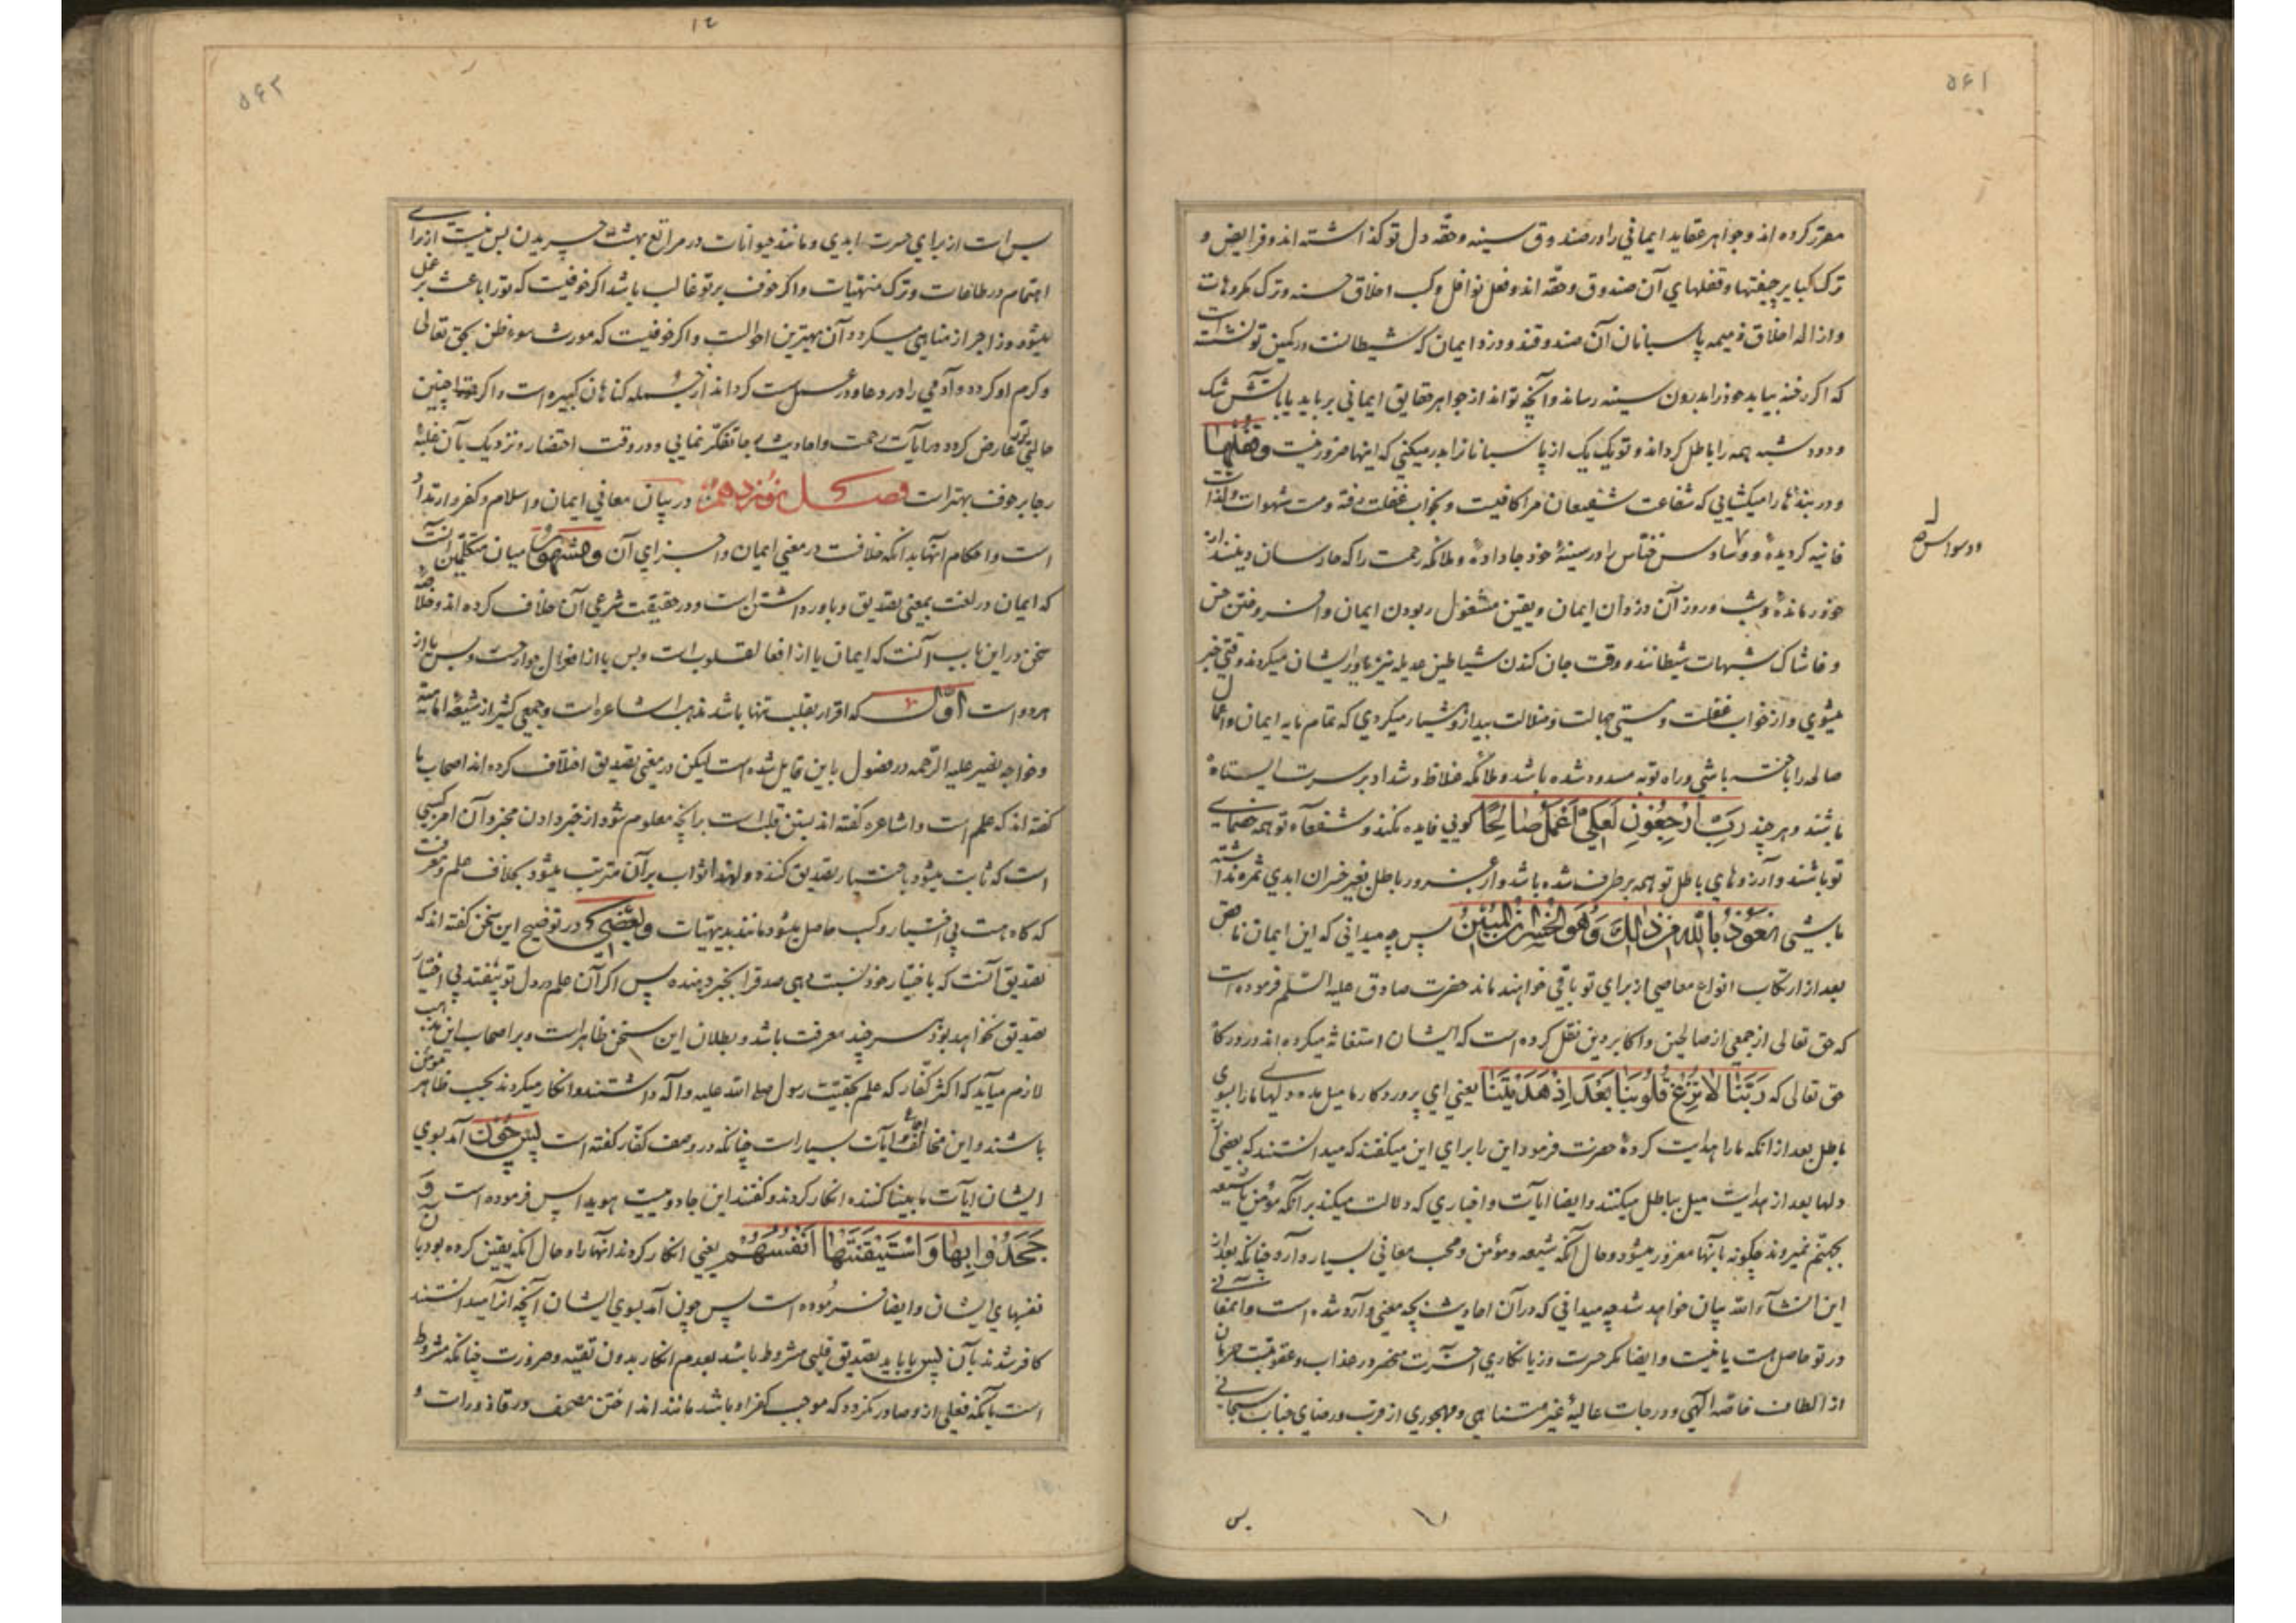 ۵۶۱
مقرر کرده اند و جواهر عقاید ایمانی را در صندوق سینه و حقه دل تو کذاشته اند و فرایض و
ترک کبایر چفتها و قفلهای آن صندوق و حقه اند و فعل نوافل و کسب اخلاق حسنه و ترک مکروهات
و ازاله اخلاق ذمیمه پاسبانان آن صندوقند و دزد ایمان که شیطانست در کمین تو نشسته است
که اکر رخنه بیابد خود را بدرون سینه رساند و آنچه تواند از جواهر حقایق ایمانی برباید یا بآتش شک
و دود شبهه همه را باطل کرداند و تو یک یک از پاسبانانرا بدر میکنی که اینها ضرور نیست و قفلها
و دربندها را میکشایی که شفاعت شفیعان مرا کافیست و بخواب غفلت رفته و مست شهوات و لذات
فانیه کردیده و وساوس خناس را در سینهٔ خود جا داده و ملائکه رحمت را که حارسان دینند از
وسواس صح
خود رمانده و شب و روز آن دزدان ایمان و یقین مشغول ربودن ایمان و افروختن خس
و خاشاک شبهات شیطانند و وقت جان کندن شیاطین عدیله نیز یاور ایشان میکردند وقتی خبر
میشوی و از خواب غفلت و مستی جهالت و ضلالت بیدار و هشیار میکردی که تمام مایه ایمان و اعمال
صالحه را باخته باشی و راه توبه مسدود شده باشد و ملائکه غلاظ و شداد بر سرت ایستاده
باشند و هر چند رَبِّ ارْجِعُونِ لَعَلِّی أَعْمَلُ صَالِحًا کویی فایده نکند و شفعاء تو همه خصمای
تو باشند و آرزوهای باطل تو همه برطرف شده باشد و از غرور باطل بغیر خسران ابدی ثمره نداشته
باشی نَعُوذُ بِاللَّهِ مِنْ ذَلِکَ وَهُوَ الْخُسْرَانُ الْمُبِینُ پس چه میدانی که این ایمان ناقص
بعد از ارتکاب انواع معاصی از برای تو باقی خواهند ماند حضرت صادق علیه السلم فرموده است
که حق تعالی از جمعی از صالحین و اکابر دین نقل کرده است که ایشان استغاثه میکرده اند در درکاه
حق تعالی که رَبَّنَا لَا تُزِغْ قُلُوبَنَا بَعْدَ إِذْ هَدَیْتَنَا یعنی ای پروردکار ما میل مده دلهای ما را بسوی
باطل بعد از انکه ما را هدایت کردهٔ حضرت فرمود این را برای این میکفتند که میدانستند که بعضی از
دلها بعد از هدایت میل بباطل میکنند و ایضا ایات و اخباری که دلالت میکند بر آنکه مؤمن یا شیعه
بجهنم نمیروند چکونه بآنها مغرور میشود و حال آنکه شیعه و مؤمن و محب معانی بسیار دارد چنانکه بعد از
این انشآء الله بیان خواهد شد چه میدانی که در آن احادیث بچه معنی وارد شده است و آن معنی
در تو حاصل هست یا نیست و ایضا مکر حسرت و زیانکاری آخرت منحصر در عذاب و عقوبتست حرمان
از الطاف خاصه الهی و درجات عالیهٔ غیر متناهی و مهجوری از قرب و رضای جناب سبحانی
بس
۵۶۲
بس است از برای حسرت ابدی و مانند حیوانات در مراتع بهشت چریدن بس نیست از برای
اهتمام در طاعات و ترک منهیات و اکر خوف بر تو غالب باشد اکر خوفیست که تو را باعث بر عمل
میشود و زاجر از مناهی میکردد آن بهترین احوالست و اکر خوفیست که مورث سوء ظن بحق تعالی
و کرم او کردد و آدمی را در دعا و در عمل سست کرداند از جمله کناهان کبیره است و اکر چنین
حالتی تورا عارض کردد در ایات رحمت و احادیث رجا تفکر نمایی و در وقت احتضار و نزدیک بآن غلبهٔ
رجا بر خوف بهتر است فصل نوزدهم در بیان معانی ایمان و اسلام و کفر و ارتداد
است و احکام آنها بدانکه خلافست در معنی ایمان و اجزای آن و مشهور میان متکلمین آنست
که ایمان در لغت بمعنی تصدیق و باور داشتن است و در حقیقت شرعی آن خلاف کرده اند و خلاصه
سخن در این باب آنست که ایمان یا از افعال قلوب است و بس یا از افعال جوارحست و بس یا از
هر دو است اول که اقرار بقلب تنها باشد مذهب اشاعره است و جمعی کثیر از شیعهٔ امامیه
و خواجه نصیر علیه الرحمه در فصول باین قایل شده است لیکن در معنی تصدیق اختلاف کرده اند اصحاب ما
کفته اند که علم است و اشاعره کفته اند بستن قلب است بر انچه معلوم شود از خبر دادن مخبر و آن امر کسبی
است که ثابت میشود باختیار تصدیق کننده و لهذا ثواب بر آن مترتب میشود بخلاف علم و معرفت
که کاه هست بی اختیار و کسب حاصل میشود مانند بدیهیات و بعضی در توضیح این سخن کفته اند که
تصدیق آنست که باختیار خود نسبت دهی صدقرا بخبر دهنده پس اکر آن علم در دل تو بیفتد بی اختیار
تصدیق نخواهد بود هر چند معرفت باشد و بطلان این سخن ظاهر است و بر اصحاب این مذهب
لازم میآید که اکثر کفار که علم بحقیت رسول صلی الله علیه و آله داشتند و انکار میکردند بحسب ظاهر مؤمن
باشند و این مخالف آیات بسیار است چنانکه در وصف کفار کفته است پس چون آمد بسوی
ایشان ایات ما بینا کننده انکار کردند و کفتند این جادوییست هویدا پس فرموده است وَ
جَحَدُوا بِهَا وَاسْتَیْقَنَتْهَا أَنْفُسُهُمْ یعنی انکار کردند انها را و حال آنکه یقین کرده بود بآن
نفسهای ایشان و ایضا فرموده است پس چون آمد بسوی ایشان آنچه آنرا میدانستند
کافر شدند بآن پس یا باید تصدیق قلبی مشروط باشد بعدم انکار بدون تقیه و ضرورت چنانکه مشروط
است بآنکه فعلی از و صادر نکردد که موجب کفر او باشد مانند انداختن مصحف در قاذورات و